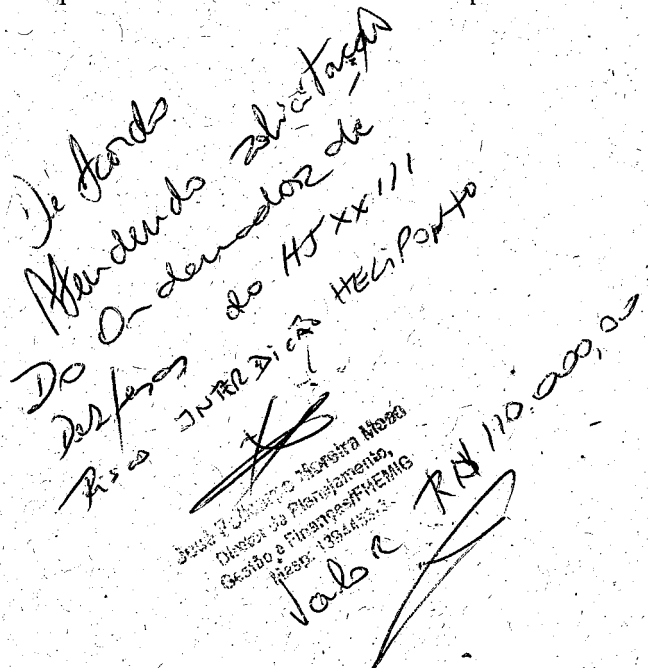 De Acordo
Atendendo solicitação
Do Ordenador de
Despesas do HJXXIII
Risco INTERDIÇÃO HELIPONTO
Moreira
Diretor de Planejamento,
Gestão e Finanças/FHEMIG
Masp:
Valor R$ 110.000,00